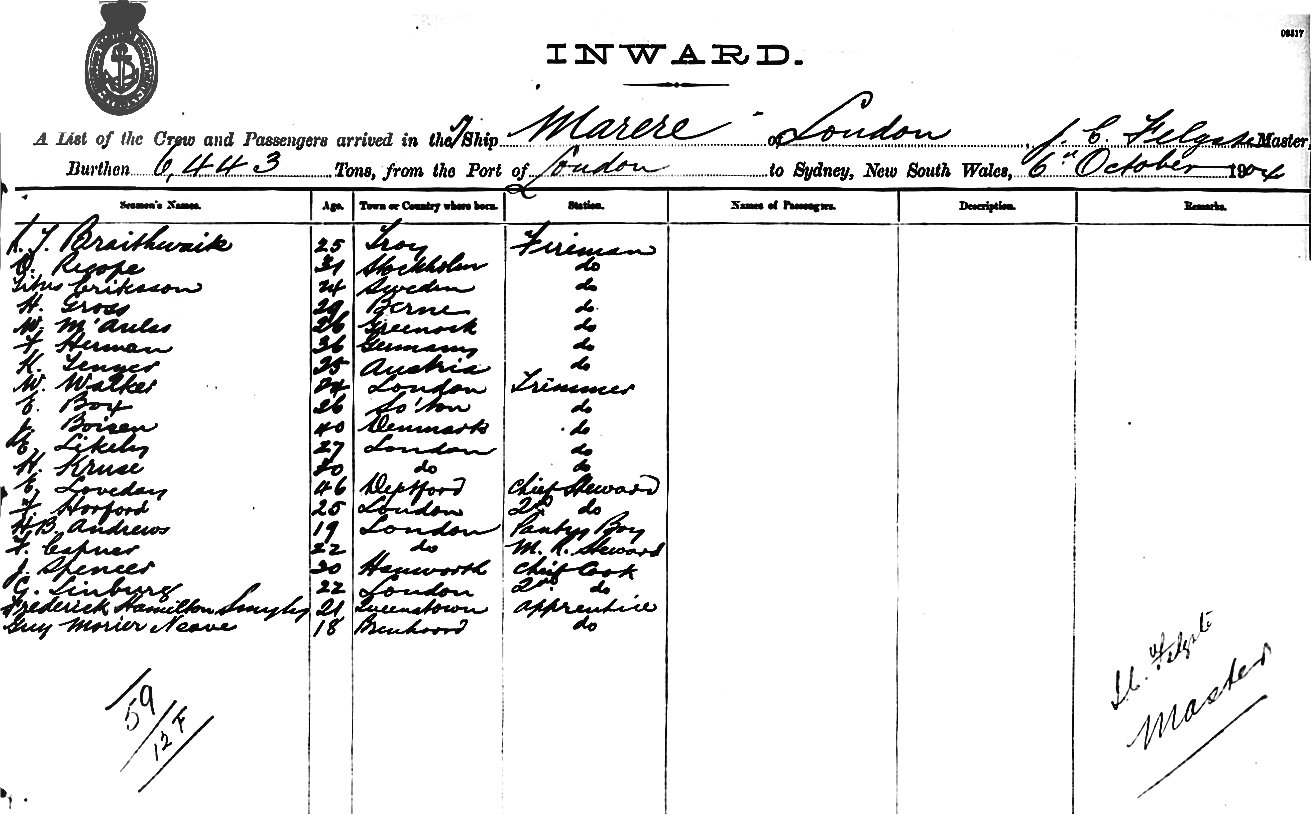 08817
INWARD.
A List of the Crew and Passengers arrived in the S/Ship Marere of London, J. E. Felgate Master,
Burthen 6,443 Tons, from the Port of London to Sydney, New South Wales, 6th October 1904
Seamen's Names. Age. Town or Country where born. Station. Names of Passengers. Description. Remarks.
T. Braithwaite 25 Troy Fireman
31 Stockholm do
Titus Eriksson 24 Sweden do
H. Gross 29 Berne do
W. M'Aulas 26 Greenock do
F. Herman 36 Germany do
K. 35 Austria do
W. Walker 24 London Trimmer
E. Box 26 So'ton do
J. Boisen 40 Denmark do
E. Likely 27 London do
H. Kruse 20 do do
E. Loveday 46 Deptford Chief Steward
F. Horford 25 London 2nd do
H. B. Andrews 19 London Pantry Boy
F. Capner 22 do M. R. Steward
J. Spencer 30 Hanworth Chief Cook
G. Linburg 22 London 2nd do
Frederick Hamilton Smyly 21 Queenstown apprentice
Guy Morier Neave 18 do
59
12 F
Felgate
Master